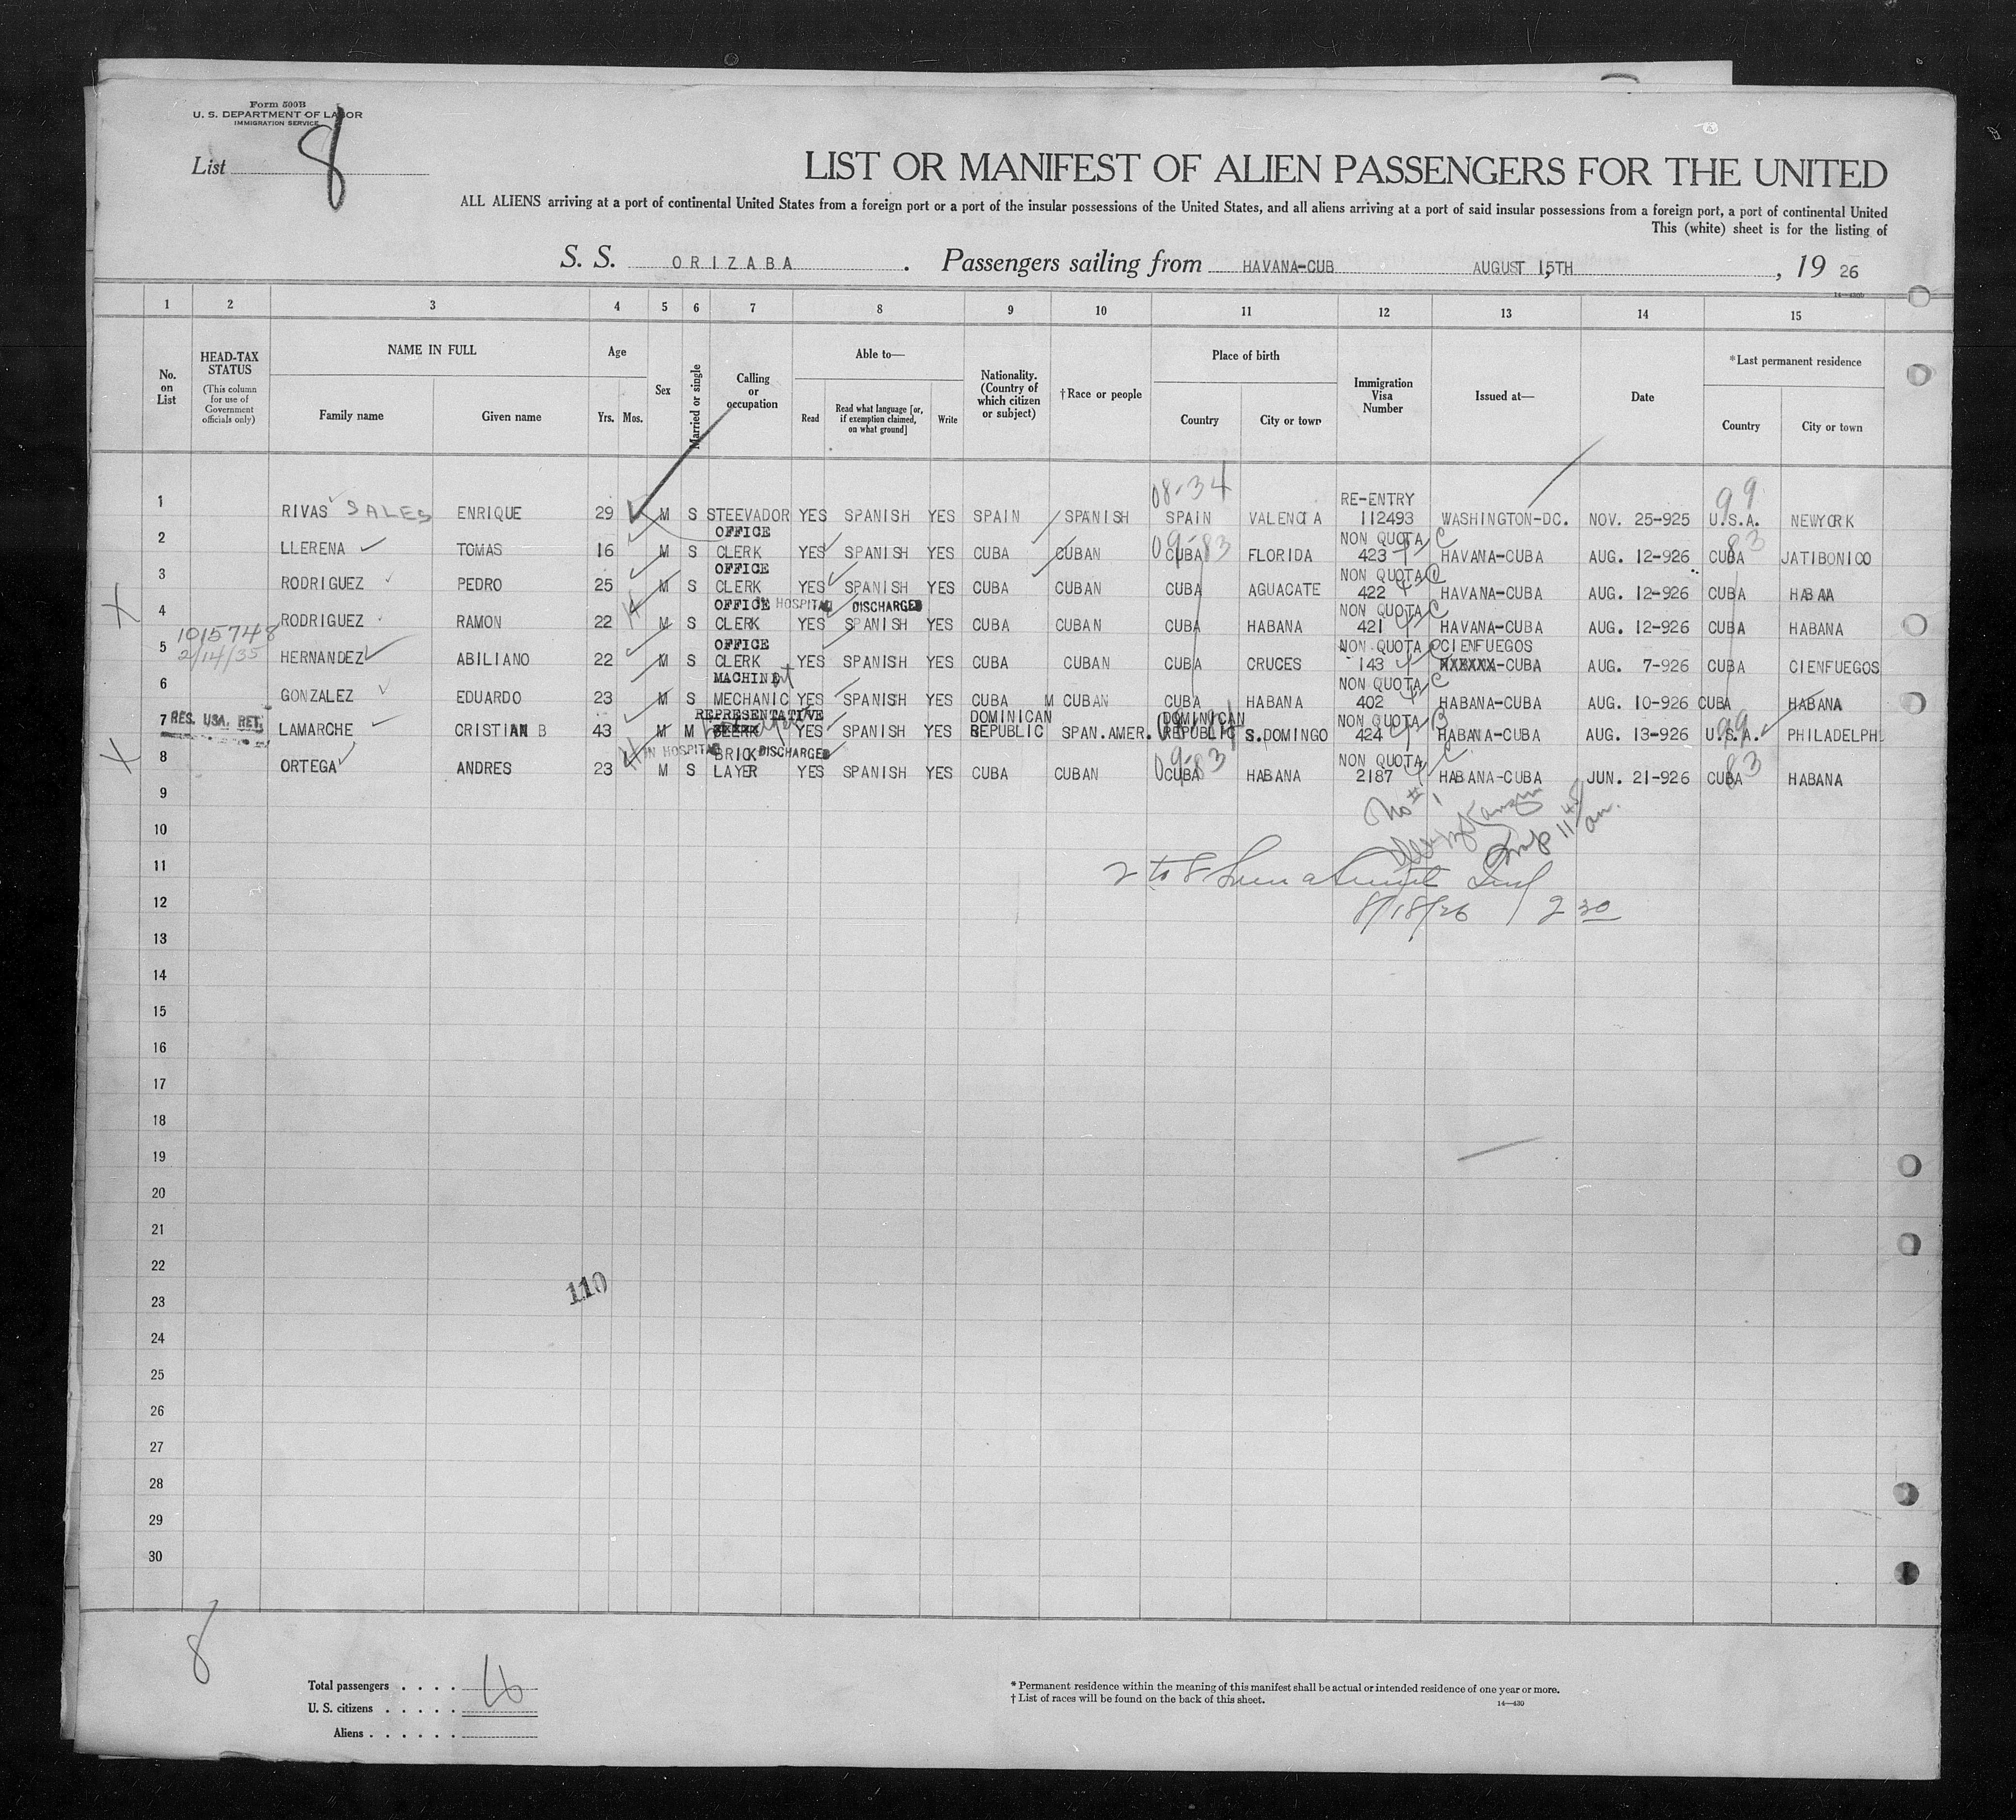 Form 500B
U. S. DEPARTMENT OF LABOR
IMMIGRATION SERVICE
List 8
LIST OR MANIFEST OF ALIEN PASSENGERS FOR THE UNITED
ALL ALIENS arriving at a port of continental United States from a foreign port or a port of the insular possessions of the United States, and all aliens arriving at a port of said insular possessions from a foreign port, a port of continental United
This (white) sheet is for the listing of
S. S. ORIZABA. Passengers sailing from HAVANA-CUB AUGUST 15TH, 19 26
14—430b
1 2 3 4 5 6 7 8 9 10 11 12 13 14 15
No. on List
HEAD-TAX STATUS
(This column for use of Government officials only)
NAME IN FULL
Family name Given name
Age
Yrs. Mos.
Sex
Married or single
Calling or occupation
Able to—
Read
Read what language [or, if exemption claimed, on what ground]
Write
Nationality. (Country of which citizen or subject)
†Race or people
Place of birth
Country City or town
Immigration Visa Number
Issued at—
Date
*Last permanent residence
Country City or town
08-34 99
RE-ENTRY
1 RIVAS SALES ENRIQUE 29 M S STEEVADOR YES SPANISH YES SPAIN SPANISH SPAIN VALENCIA 112493 WASHINGTON-DC. NOV. 25-925 U.S.A. NEWYORK
OFFICE NON QUOTA C
09-83 83
2 LLERENA TOMAS 16 M S CLERK YES SPANISH YES CUBA CUBAN CUBA FLORIDA 423 HAVANA-CUBA AUG. 12-926 CUBA JATIBONICO
OFFICE NON QUOTA
3 RODRIGUEZ PEDRO 25 M S CLERK YES SPANISH YES CUBA CUBAN CUBA AGUACATE 422 HAVANA-CUBA AUG. 12-926 CUBA HABAA
X OFFICE IN HOSPITAL DISCHARGED NON QUOTA C
4 RODRIGUEZ RAMON 22 M S CLERK YES SPANISH YES CUBA CUBAN CUBA HABANA 421 HAVANA-CUBA AUG. 12-926 CUBA HABANA
1015748
2/14/35
OFFICE NON QUOTA C CIENFUEGOS
5 HERNANDEZ ABILIANO 22 M S CLERK YES SPANISH YES CUBA CUBAN CUBA CRUCES 143 HXBXXX-CUBA AUG. 7-926 CUBA CIENFUEGOS
MACHINE NON QUOTA C
6 GONZALEZ EDUARDO 23 M S MECHANIC YES SPANISH YES CUBA M CUBAN CUBA HABANA 402 HABANA-CUBA AUG. 10-926 CUBA HABANA
RES. USA. RET. REPRESENTATIVE DOMINICAN DOMINICAN NON QUOTA B
7 LAMARCHE CRISTIAN B 43 M M CLERK YES SPANISH YES REPUBLIC SPAN.AMER. REPUBLIC S.DOMINGO 424 HABANA-CUBA AUG. 13-926 U.S.A. 99 PHILADELPH.
X IN HOSPITAL BRICK DISCHARGED 09-83 NON QUOTA C 83
8 ORTEGA ANDRES 23 M S LAYER YES SPANISH YES CUBA CUBAN CUBA HABANA 2187 HABANA-CUBA JUN. 21-926 CUBA HABANA
9
No # 1
10
11 45 am.
11
2 to 8
12
8/18/26 2 30
13
14
15
16
17
18
19
20
21
22
110
23
24
25
26
27
28
29
30
8
Total passengers
U. S. citizens
Aliens
* Permanent residence within the meaning of this manifest shall be actual or intended residence of one year or more.
† List of races will be found on the back of this sheet.
14—430